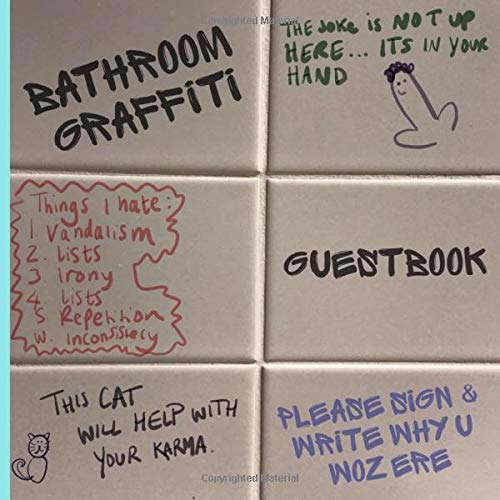 BATHROOM
GRAFFiTi
THE JOKE iS NOT UP
HERE... ITS IN YOUR
HAND
Things I hate:
1. Vandalism
2. Lists
3 Irony
4 Lists
5 Repetition
W. Inconsistecy
GUESTBOOK
THIS CAT
WILL HELP WITH
YOUR KARMA.
PLEASE SiGN &
WRiTE WHY U
WOZ ERE
Copyrighted Material
Copyrighted Material